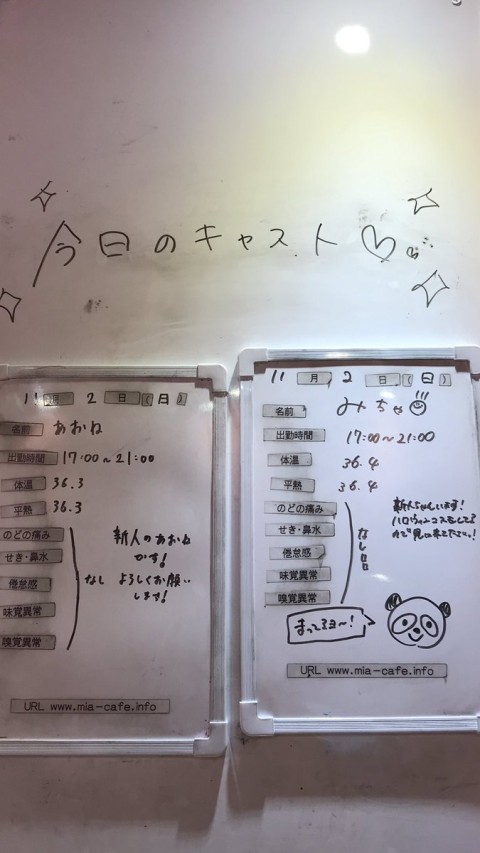 今日のキャスト♡
11月 2日(日)
名前 あおね
出勤時間 17:00~21:00
体温 36.3
平熱 36.3
のどの痛み
せき・鼻水
倦怠感
味覚異常
嗅覚異常
なし
新人のあおね
かす!
よろしくお願い
します!
URL www.mia-cafe.info
11月 2日(日)
名前 みちゃ
出勤時間 17:00~21:00
体温 36.4
平熱 36.4
のどの痛み
せき・鼻水
倦怠感
味覚異常
嗅覚異常
なし
新人ちゃんいます!
ハロウィンコスもしてる
ので見に来てださい!
まってるヨ~!
URL www.mia-cafe.info